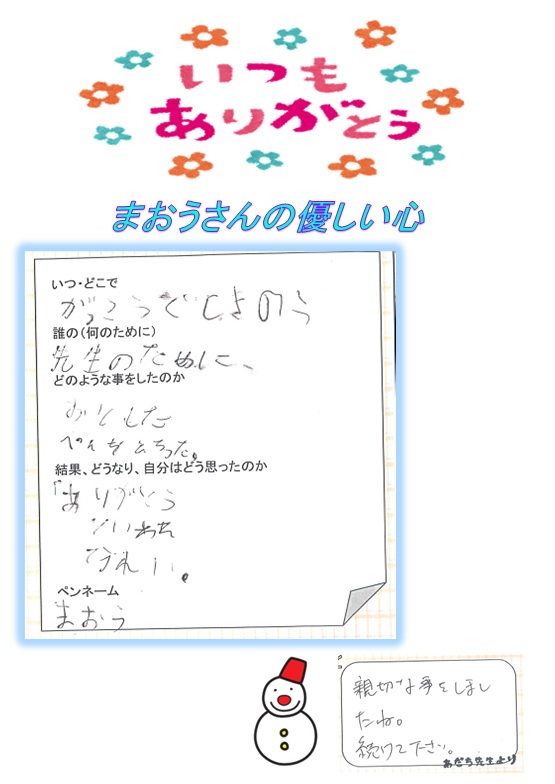 いつも
ありがとう
まおうさんの優しい心
いつ・どこで
がっこうでじょの
誰の(何のために)
先生のために、
どのような事をしたのか
おとした
ぺんをとった。
結果、どうなり、自分はどう思ったのか
「ありがとう
ペンネーム
まおう
親切な事をしまし
たね。
続けて下さい。
あだち先生より